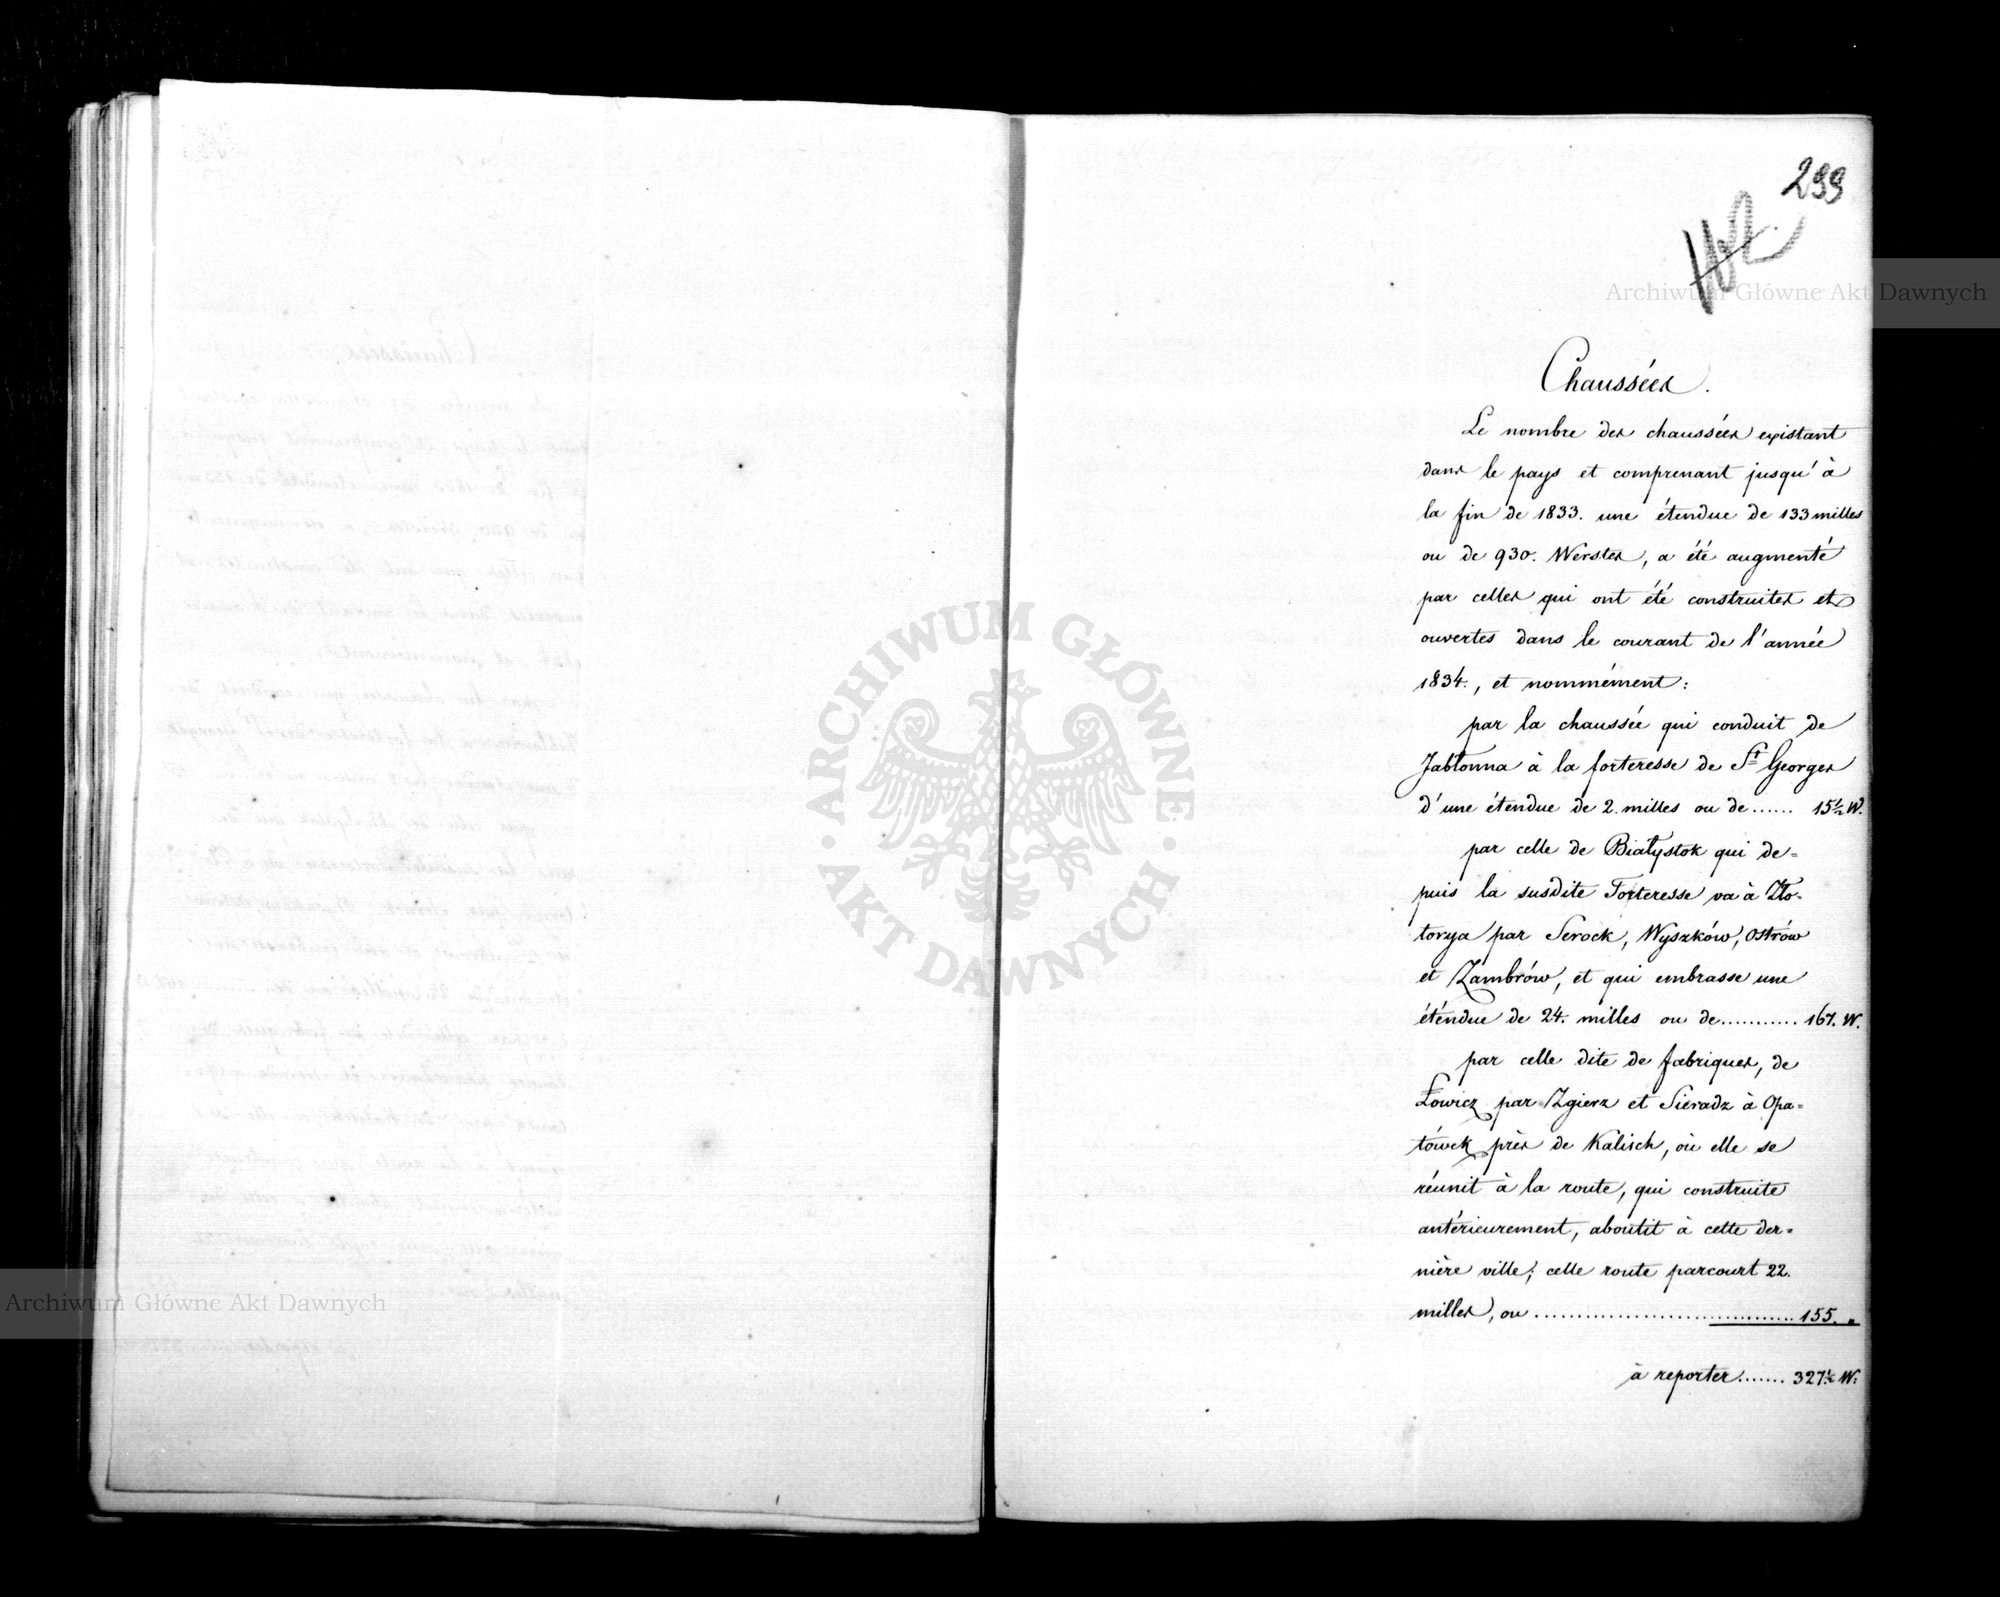 299
Archiwum Główne Akt Dawnych
Chaussées.
Le nombre des chaussées existant
dans le pays et comprenant jusqu'à
la fin de 1833. une étendue de 133 milles
ou de 930. Werstes, a été augmenté
par celles qui ont été construites et
ouvertes dans le courant de l'année
1834., et nommément:
par la chaussée qui conduit de
Jabłonna à la forteresse de St Georges
d'une étendue de 2. milles ou de...... 15 1/2 W.
par celle de Białystok qui de=
puis la susdite Forteresse va à Zło-
torya par Serock, Wyszków, Ostrów
et Zambrów, et qui embrasse une
étendue de 24. milles ou de........... 167. W.
par celle dite de fabriques, de
Łowicz par Zgierz et Sieradz à Opa=
tówek près de Kalisch, où elle se
réunit à la route, qui construite
antérieurement, aboutit à cette der=
nière ville; celle route parcourt 22.
milles, ou .................................... 155. "
à reporter....... 327 1/2 W.
ARCHIWUM GŁÓWNE
AKT DAWNYCH
Archiwum Główne Akt Dawnych